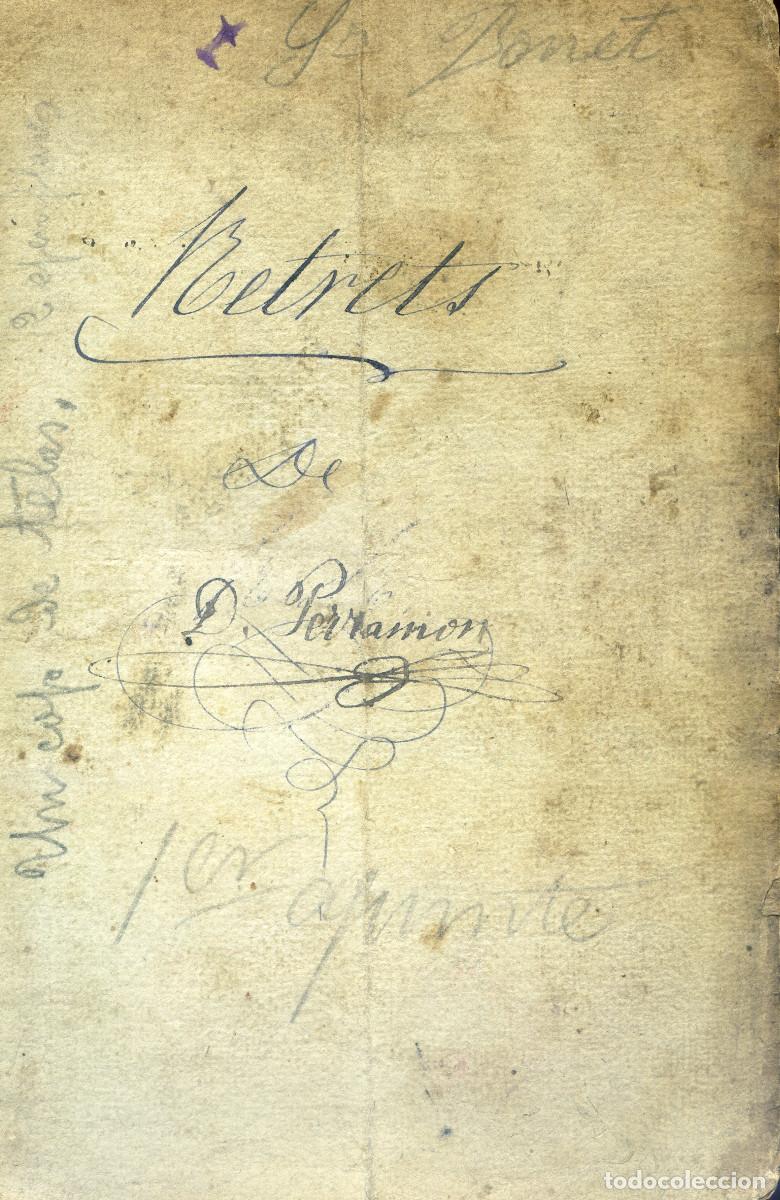 Sr Bonet
Retrets
De
D. Perramon
1er apunte
Un copo de telas, 2 ejemplares
todocoleccion